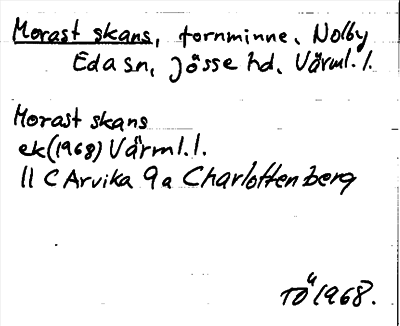 Morast skans, fornminne, Nolby
Eda sn, Jösse hd, Värml. l.
Morast skans
ek (1968) Värml. l.
11 C Arvika 9 a Charlottenberg
TÖ 1968.